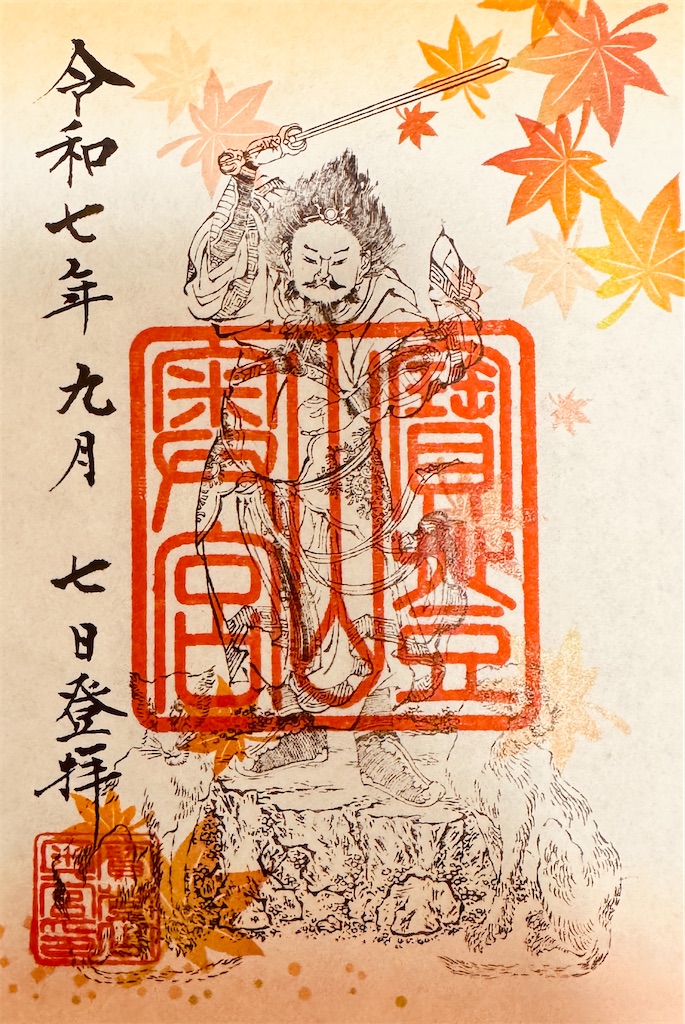 寶登
山
奥宮
令和七年九月七日登拝